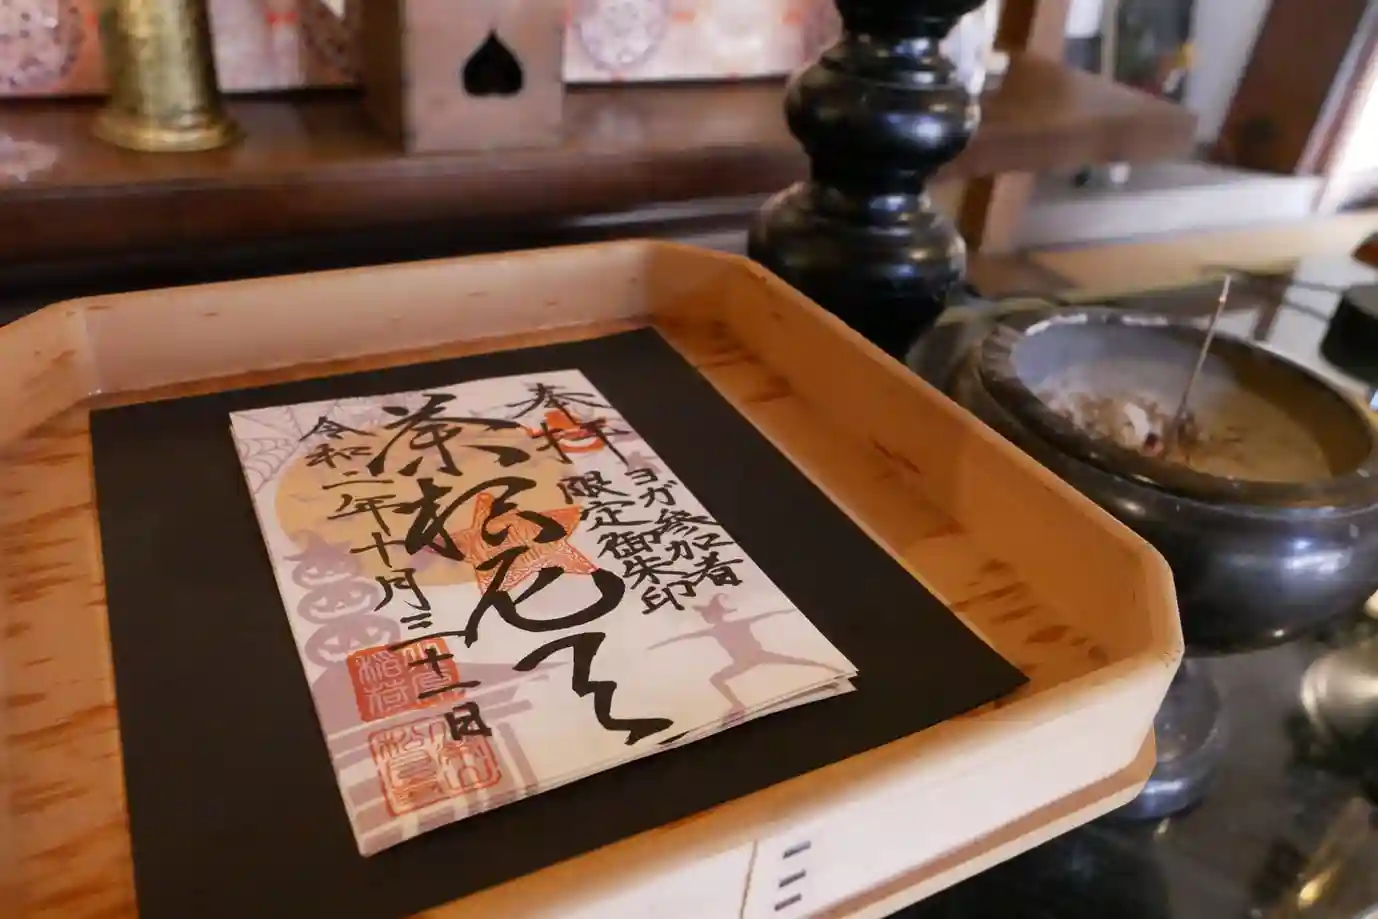 奉拝
ヨガ參加者
限定御朱印
荼枳尼天
令和二年十月三十一日
稲荷